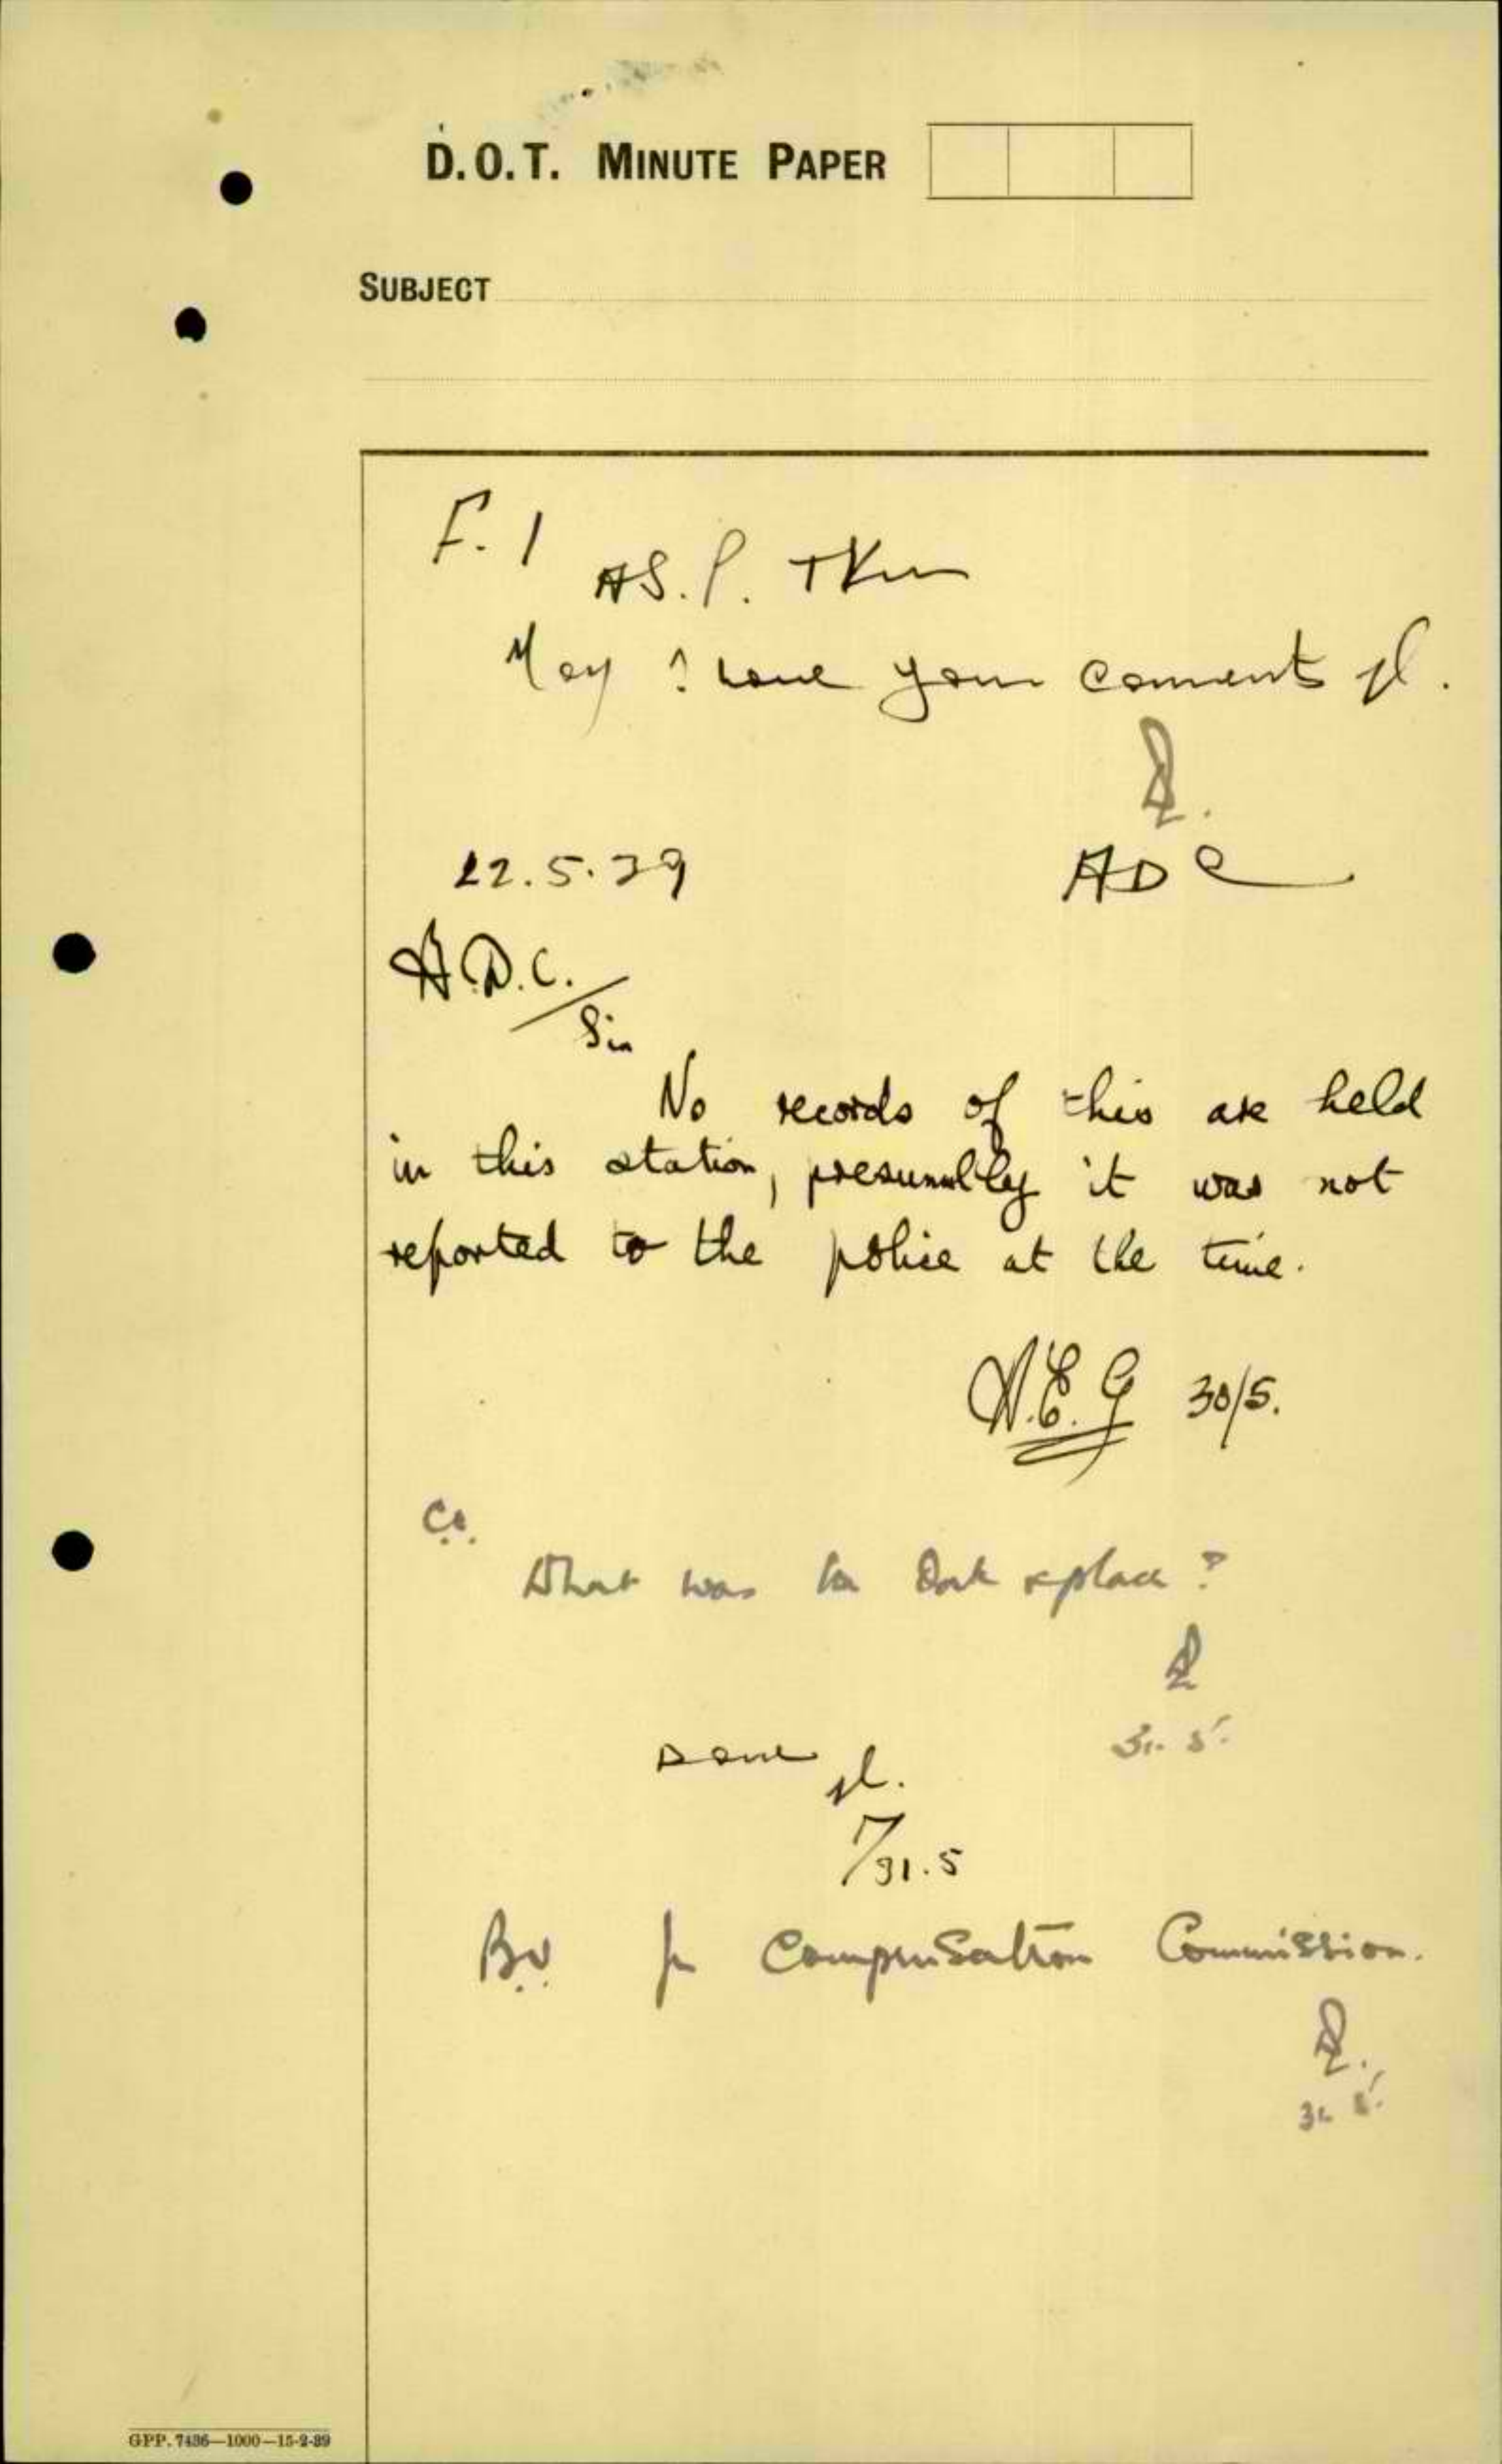 D.O.T. MINUTE PAPER
SUBJECT
F. 1
A.S.P. TKm
May I have your coments pl.
22.5.39
ADC
A.D.C.
Sir
No records of this are held
in this station, presumably it was not
reported to the police at the time.
30/5.
What was the Date & place?
31. 5.
Done pl.
31.5
for Compensation Commission.
31. 5.
GPP. 7436—1000—15-2-39